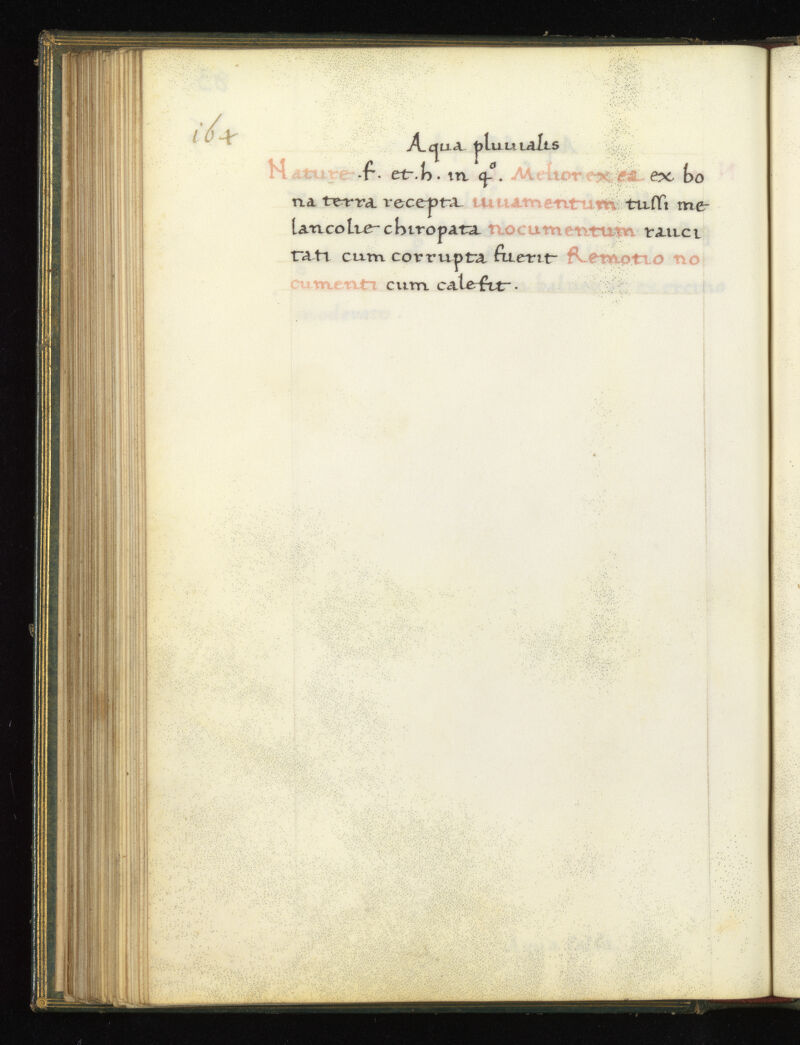 164
Aqua pluuialis
Nature .f. et .h. in q°. Melior ex ea ex bo
na terra recepta iuuamentum tussi me
lancolie chiropata nocumentum rauci
tati cum corrupta fuerit Remotio no
cumenti cum calefit .